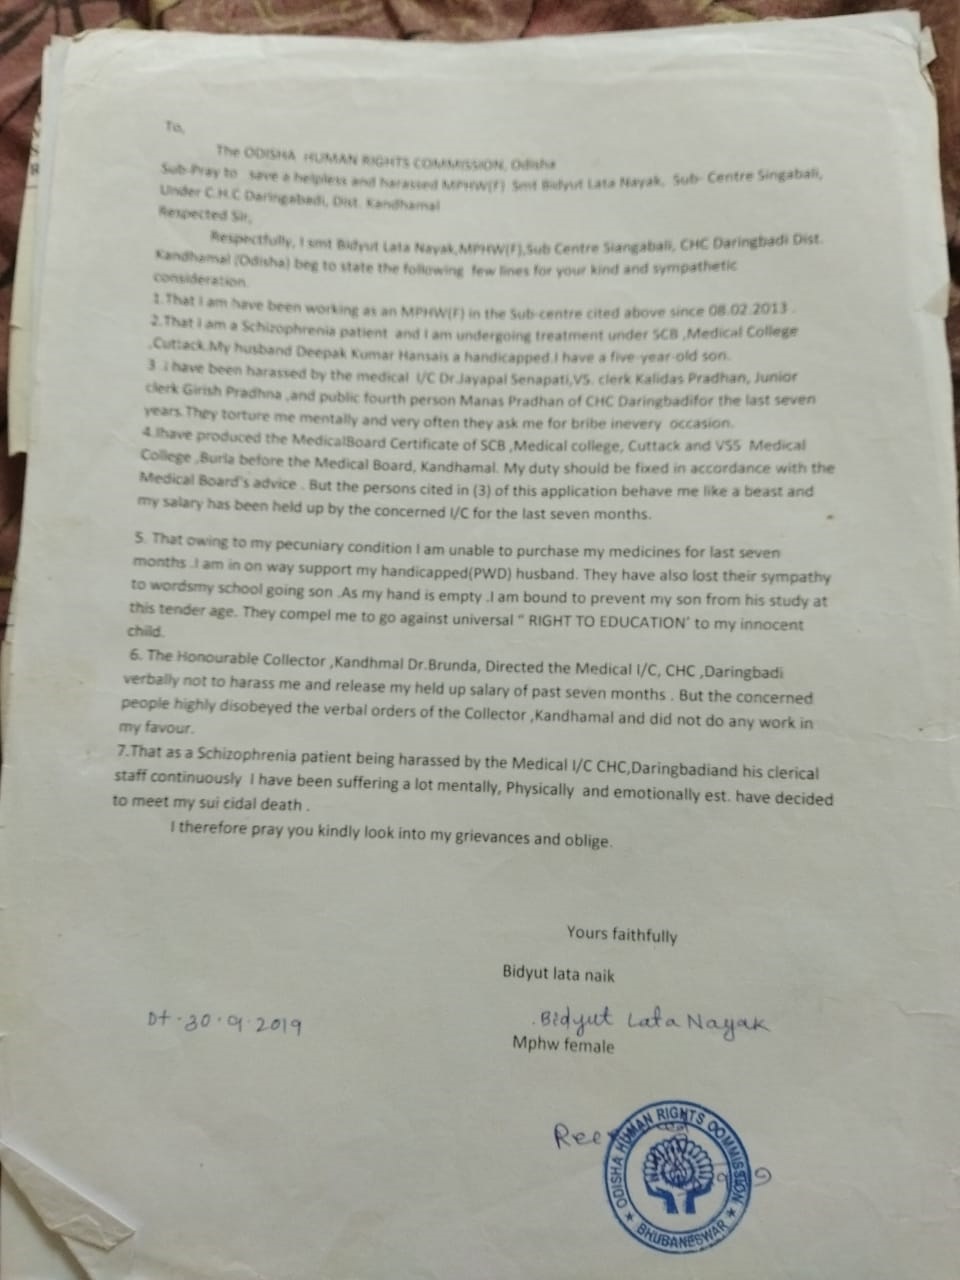 To,
The ODISHA HUMAN RIGHTS COMMISSION, Odisha
Sub-Pray to save a helpless and harassed MPHW(F) Smt Bidyut Lata Nayak, Sub- Centre Singabali,
Under C.H.C Daringabadi, Dist. Kandhamal
Respected Sir,
Respectfully, I smt Bidyut Lata Nayak,MPHW(F),Sub Centre Siangabali, CHC Daringbadi Dist.
Kandhamal (Odisha) beg to state the following few lines for your kind and sympathetic
consideration.
1.That I am have been working as an MPHW(F) in the Sub-centre cited above since 08.02.2013 .
2.That i am a Schizophrenia patient and I am undergoing treatment under SCB ,Medical College
,Cuttack.My husband Deepak Kumar Hansais a handicapped.I have a five-year-old son.
3 .i have been harassed by the medical I/C Dr.Jayapal Senapati,VS. clerk Kalidas Pradhan, Junior
clerk Girish Pradhna ,and public fourth person Manas Pradhan of CHC Daringbadifor the last seven
years.They torture me mentally and very often they ask me for bribe inevery occasion.
4.Ihave produced the MedicalBoard Certificate of SCB ,Medical college, Cuttack and VSS Medical
College ,Burla before the Medical Board, Kandhamal. My duty should be fixed in accordance with the
Medical Board's advice . But the persons cited in (3) of this application behave me like a beast and
my salary has been held up by the concerned I/C for the last seven months.
5. That owing to my pecuniary condition I am unable to purchase my medicines for last seven
months .I am in on way support my handicapped(PWD) husband. They have also lost their sympathy
to wordsmy school going son .As my hand is empty .I am bound to prevent my son from his study at
this tender age. They compel me to go against universal " RIGHT TO EDUCATION' to my innocent
child.
6. The Honourable Collector ,Kandhmal Dr.Brunda, Directed the Medical I/C, CHC ,Daringbadi
verbally not to harass me and release my held up salary of past seven months . But the concerned
people highly disobeyed the verbal orders of the Collector ,Kandhamal and did not do any work in
my favour.
7.That as a Schizophrenia patient being harassed by the Medical I/C CHC,Daringbadiand his clerical
staff continuously I have been suffering a lot mentally, Physically and emotionally est. have decided
to meet my sui cidal death .
I therefore pray you kindly look into my grievances and oblige.
Yours faithfully
Bidyut lata naik
Dt-30.9.2019
Bidyut Lata Nayak
Mphw female
ODISHA HUMAN RIGHTS COMMISSION
BHUBANESWAR